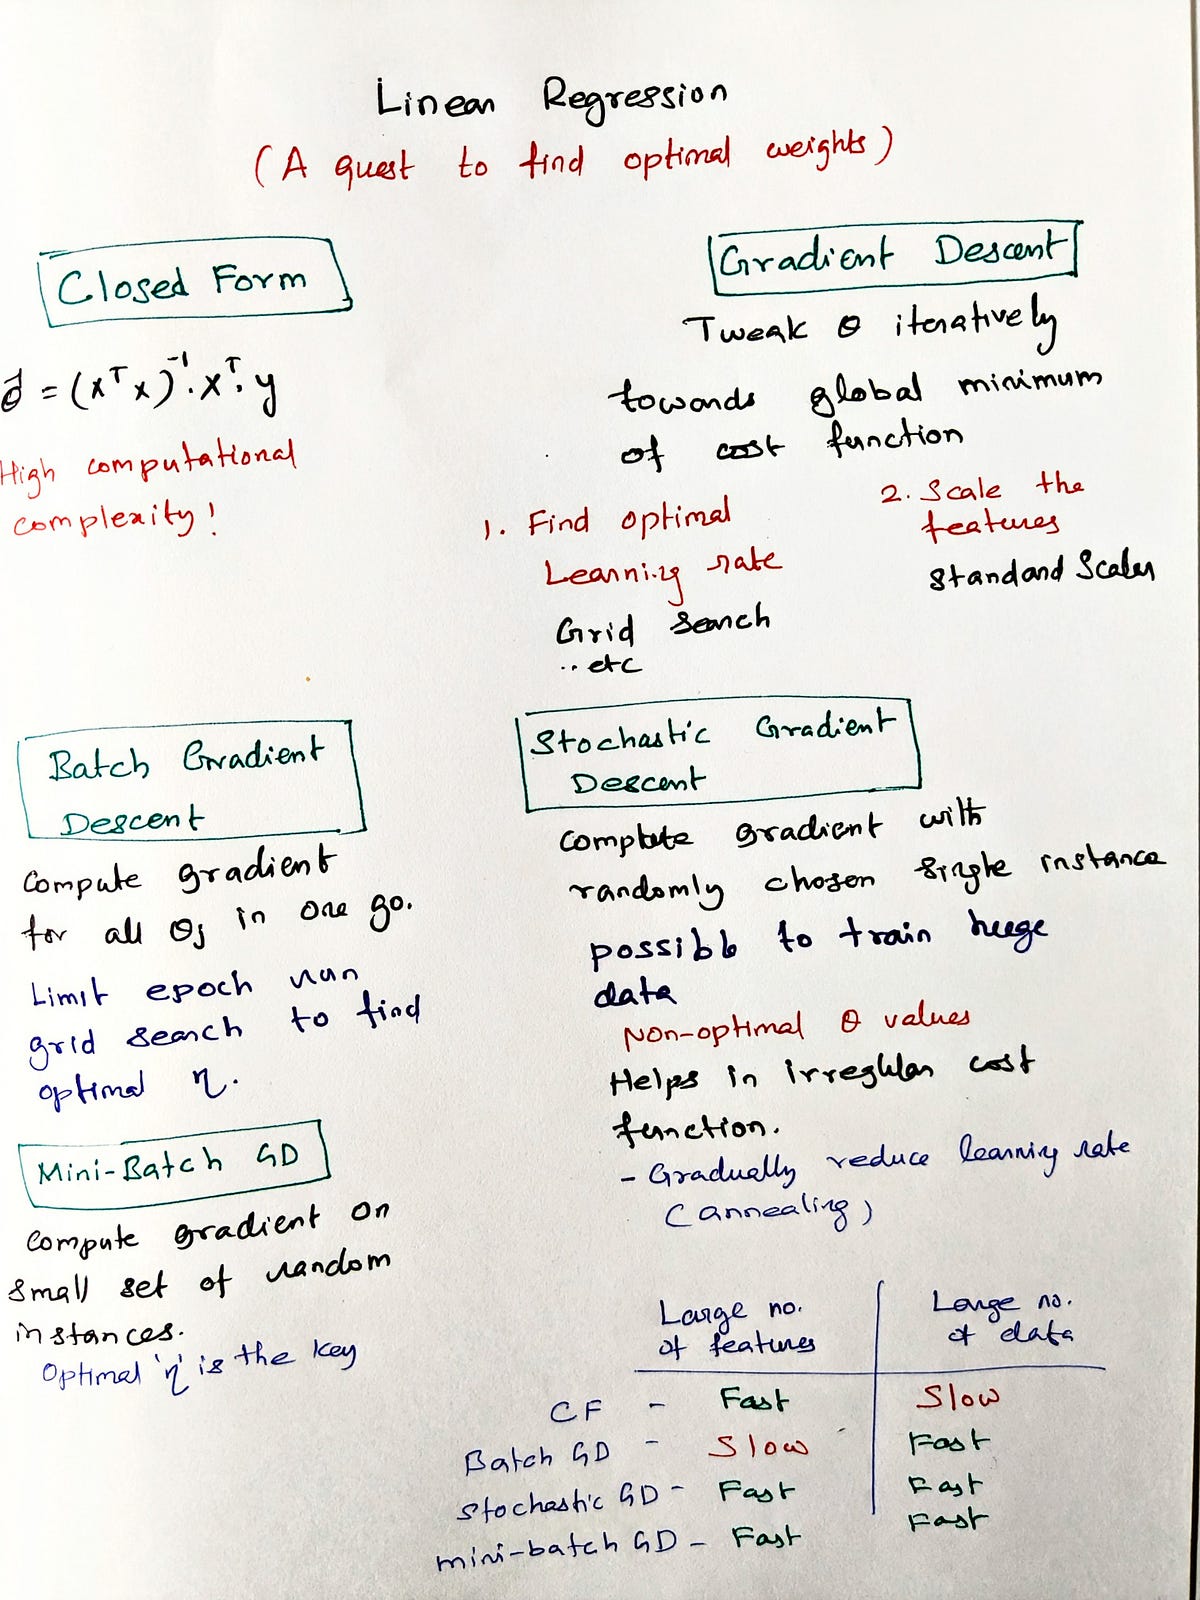 Linear Regression
(A quest to find optimal weights)
Closed Form
θ̂ = (xᵀx)⁻¹.xᵀ.y
High computational
complexity!
Gradient Descent
Tweak θ iteratively
towards global minimum
of cost function
1. Find optimal
Learning rate
Grid Search
.. etc
2. Scale the
features
Standard Scaler
Batch Gradient
Descent
Compute gradient
for all θj in one go.
Limit epoch run
grid search to find
optimal η.
Mini-Batch GD
Compute gradient on
small set of random
instances.
Optimal 'η' is the key
Stochastic Gradient
Descent
gradient with
randomly chosen single instance
possible to train huge
data
Non-optimal θ values
Helps in irregular cost
function.
- Gradually reduce learning rate
(annealing)
Large no. Large no.
of features of data
CF - Fast Slow
Batch GD - Slow Fast
Stochastic GD - Fast Fast
mini-batch GD - Fast Fast